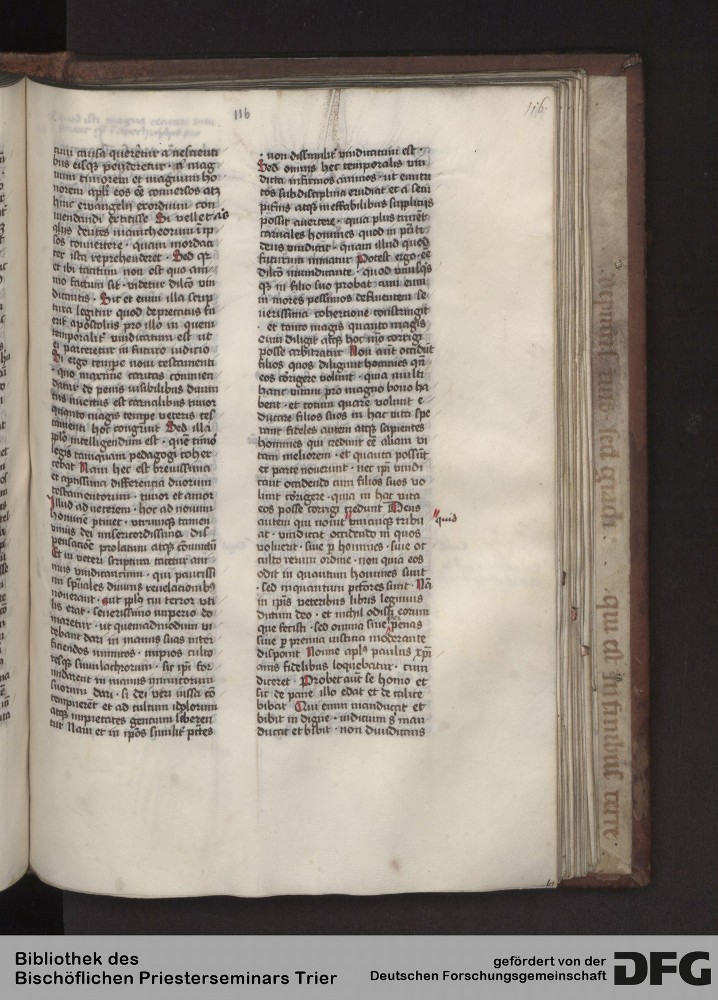 116
116
tum causa quereretur a nescienti
bus eisq; penderetur · a mag
num timorem et magnum ho
norem apli eos ee conversos atq;
hinc evangelii exordium com
mendandi dedisse Si vellet as
quis deutes manicheorum
sos convertere · quam mordaci
ter ista reprehenderet · Sed qr
et ibi tacitum non est quo ani
mo factum sit · videtur dilco vin
dicantis · Sic et enim illa scrip
tura legitur quod deprecatus fu
erit apostolus pro illo in quem
temporalit vindicatum est ut
ei parceretur in futuro iudicio
Si ergo tempe novi testamenti
· quo maxime caritas commen
datur de penis visibilibus divini
tus iniectus est carnalibus timor
quanto magis tempe veteris tes
tamenti hoc congruit Sed illa
pplo intelligendum est · que timor
legis tamquam pedagogi coher
cebat Nam hec est brevissima
et aptissima differentia duorum
testamentorum · timor et amor
Illud ad veterem · hoc ad novum
hominem ptinet · utrumque tamen
unius dei misericordissima dis
pensatione prolatum atq; coniunctum
Et in veteri scriptura tacetur ani
mus vindicantium · qui paucissi
mi spuales divinis revelationib;
noverant · aut pplus cui terror uti
lis erat · severissimo imperio do
maretur · ut quemadmodum vi
debant dari in manus suas inter
ficiendos inimicos · impios culto
resque simulachrorum · sic ipi for
midarent in manus inimicorum
suorum dari · si dei veri iussa co
tempnerent et ad cultum idolorum
atque impietates gentium laberen
tur Nam et in ipos similit pctes
· non dissimilit vindicatum est ·
Sed omnis hec temporalis vin
dicta infirmos animos · ut enutri
tos sub disciplina erudiat et a sem
piternis atq; ineffabilibus supliciis
possit avertere · quia plus timent
carnales homines quod in pnti
deus vindicat · quam illud quod
futurum minatur Potest ergo ee
dilco in vindicante · quod unusqs
que in filio suo probat cum eum
in mores pessimos defluentem se
verissima cohertione constringit
· et tanto magis quanto magis
eum diligit atq; hoc mo corrigi
posse arbitratur Non aut occidunt
filios quos diligunt homines qn
eos corrigere volunt · quia multi
hanc vitam pro magno bono ha
bent · et totum quare volunt e
ducare filios suos in hac vita spe
rant fideles autem atq; sapientes
homines qui credunt ee aliam vi
tam meliorem · et quanta possunt
ex parte noverunt · nec ipi vindi
cant occidendo cum filios suos vo
lunt corrigere · quia in hac vita
eos posse corrigi credunt Deus
autem qui novit unicuique tribu
at · vindicat occidendo in quos
voluerit · sive p homines · sive oc
culto rerum ordine · non quia eos
odit in quantum homines sunt
· sed inquantum pctores sunt · Na
in ipis veteribus libris legimus
dictum deo · et nichil odisti eorum
que fecisti · sed omnia sive penas
sive p premia iustitia moderante
disponit Nonne apls paulus xpi
anis fidelibus loquebatur · cum
diceret · Probet aut se homo et
sic de pane illo edat et de calice
bibat Qui enim manducat et
bibit indigne · iudicium s man
ducat et bibit · non diiudicans
quid
Bibliothek des
Bischöflichen Priesterseminars Trier
gefördert von der
Deutschen Forschungsgemeinschaft
DFG